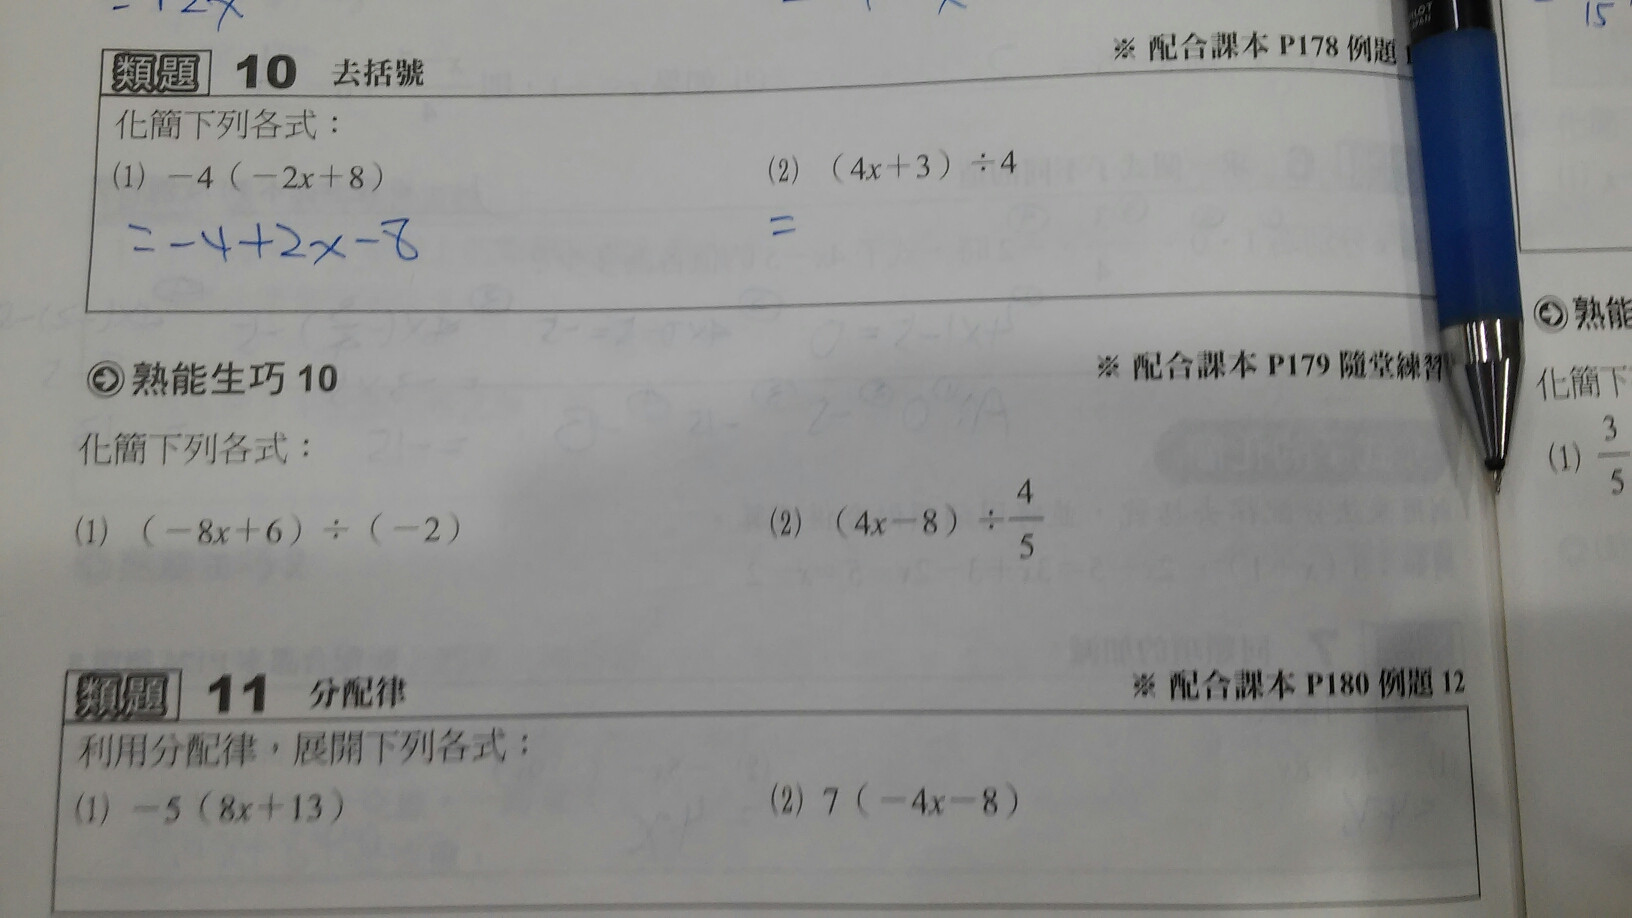 =+2x
類題 10 去括號 ※ 配合課本 P178 例題
化簡下列各式：
⑴ －4（－2x＋8） ⑵ （4x＋3）÷4
=-4+2x-8 =
熟能生巧 10 ※ 配合課本 P179 隨堂練習
化簡下列各式：
⑴ （－8x＋6）÷（－2） ⑵ （4x－8）÷4/5
類題 11 分配律 ※ 配合課本 P180 例題 12
利用分配律，展開下列各式：
⑴ －5（8x＋13） ⑵ 7（－4x－8）
15
熟能
化簡下
⑴ 3/5